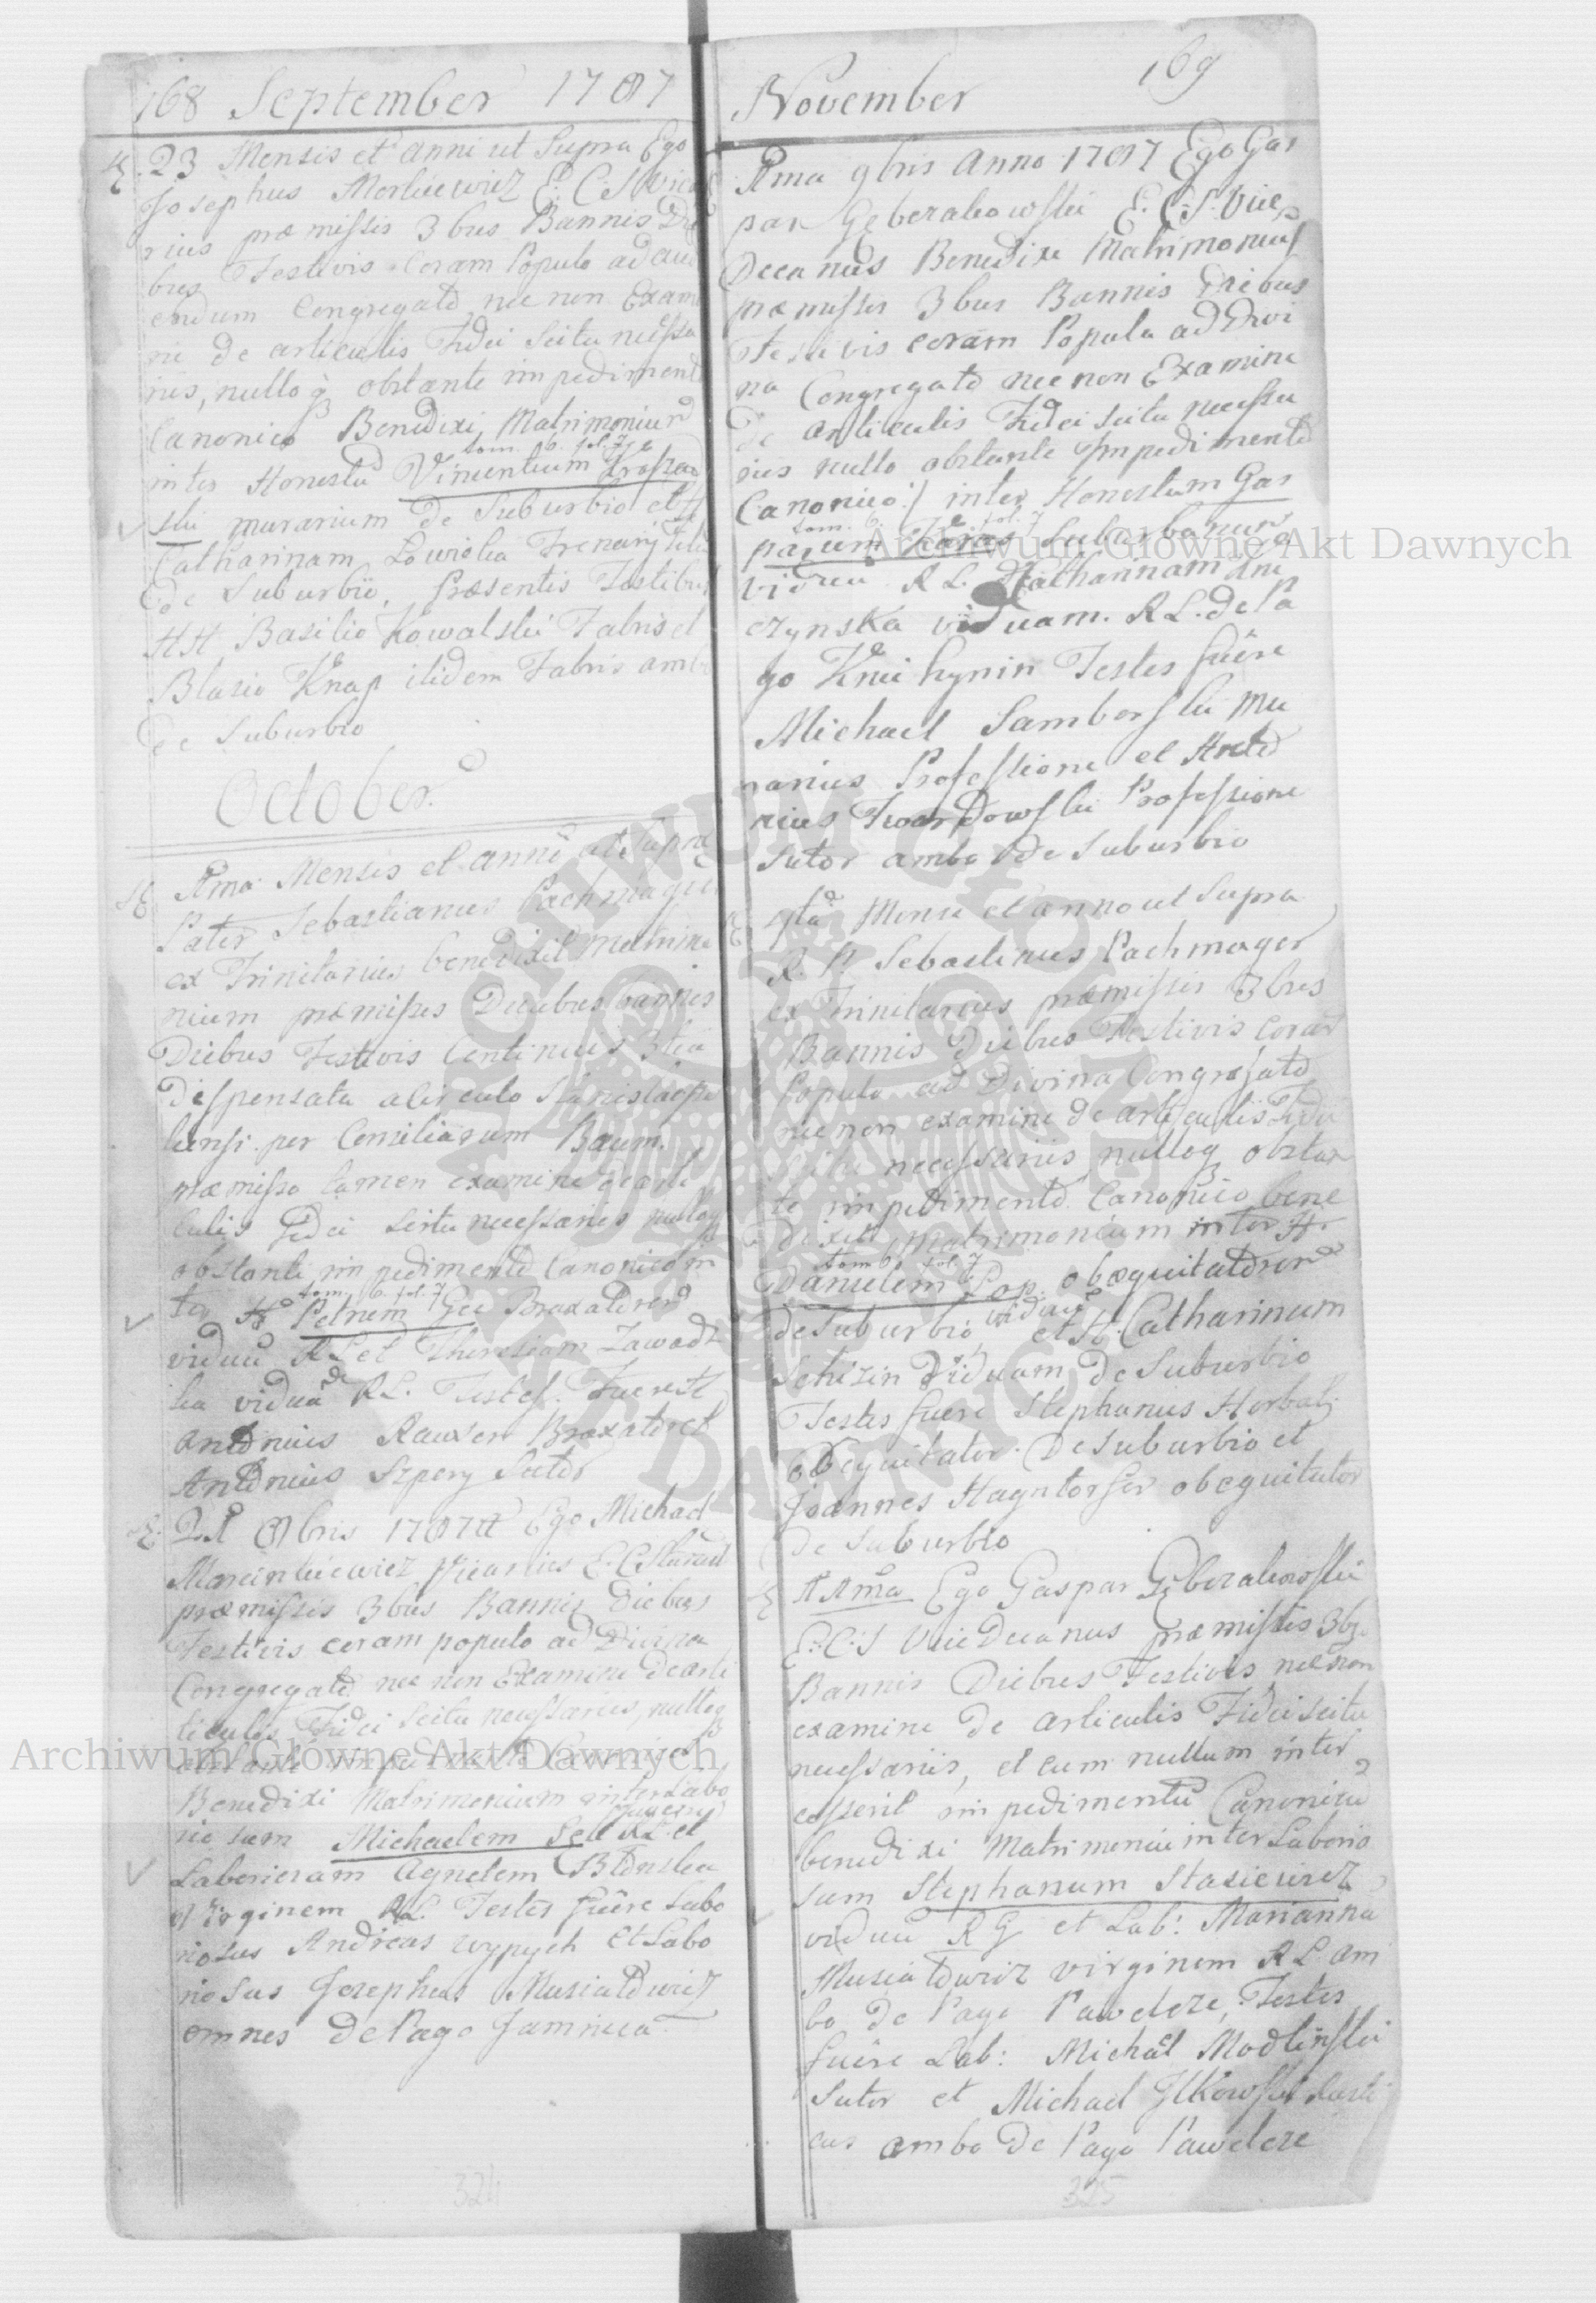 168 September 1787
23 Mensis et Anni ut Supra Ego
Josephus E. C. S. Vica
rius præmissis 3bus Bannis Die
bus Festivis Coram Populo ad audi
endum Congregato, nec non Exami
ne de articulis Fidei Scitu necessa
riis, nulloq obstante impedimento
Canonico Benedixi Matrimonium
tom. 6. fol. 7
inter Honestu Vincentium
ski murarium de Suburbio et H
Catharinam
de Suburbio, Præsentis Testibus
HH Basilio Kowalski Fabris et
Blasio Knap itidem Fabris ambo
de Suburbio
October
1ma Mensis et anni ut Supra
Pater Sebastianus Pachmager
ex Trinitariis benedixit matrimo
nium præmissis Duobus bannis
Diebus Festivis Continuis 3tia
dispensata a Circulo Stanislaopo
liensi per Consiliarum Baum.
præmisso tamen examine de arti
culis fidei scitu necessariis nulloq
obstante impedimento Canonico in
tom. 6. fol. 7
ter H Petrum Gee Braxatorem
viduu RL et Theresiam Zawadz
ka viduã RL. Testes Fuere H
Antonius Rauser Braxator et
Antonius Szpery Sutor
21 8bris 1787 Ego Michael
Marcinkiewicz Vicarius E. C.
præmissis 3bus Bannis Diebus
Festivis coram populo ad Divina
Congregato nec non Examine de arti
ticulis Fidei Scitu necessariis, nulloq
obstante impedimento Canonico
Benedixi Matrimonium inter Labo
riosum Michaelem Seu RL et
Laboriosam Agnetem
virginem RL. Testes fuêre Labo
riosus Andreas Wypych et Labo
riosus Josephus Musiatowicz
omnes De Pago Jamnica
324
November 169
1ma 9bris Anno 1787 Ego Gas
par Geberakowski E. C. S. Vice
Decanus Benedixi Matrimonium
præmissis 3bus Bannis Diebus
Festivis coram Populo ad Divi
na Congregato nec non Examine
de articulis Fidei scitu necessa
riis nullo obstante Impedimento
Canonico inter Honestum Gas
tom. 6. fol. 7
parum Suburbanum
viduu RL Catharinam
czynska viduam. RL. de Pa
go Knihynin Testes fuêre
Michael Samborski Mu
rarius Professione et Anto
nius Twardowski Professione
Sutor ambo de Suburbio
4ta Mense et anno ut Supra
R. P. Sebastianus Pachmager
ex Trinitariis præmissis 3bus
Bannis Diebus Festivis Coram
Populo ad Divina Congregato
nec non examine de articulis Fidei
scitu necessariis nulloq obstan
te impedimento Canonico bene
dixit Matrimonium inter H.
tom 6. fol. 7
Danielem Pop. obequitatorem
de Suburbio viduu et H. Catharinam
Schizin Viduam de Suburbio
Testes fuere Stephanus Horbal
obequitator de Suburbio et
Joannes Hagntorfer obequitator
de Suburbio
11ma Ego Gaspar Geberakowski
E. C. S Vice Decanus præmissis 3bs
Bannis Diebus Festivis nec non
examine de articulis Fidei scitu
necessariis, et cum nullum inter
cesserit impedimentu Canonicu
benedixi Matrimoniu inter Laborio
sum Stephanum Stasiewicz
viduu R G et Lab: Marianna
Musiatowicz virginem RL am
bo de Pago Pawelcze, Testes
fuêre Lab: Michael Modlinski
Sutor et Michael Ilkowski Rusti
cus ambo de Pago Pawelcze
325
Archiwum Główne Akt Dawnych
Archiwum Główne Akt Dawnych
ARCHIWUM GŁÓWNE AKT DAWNYCH